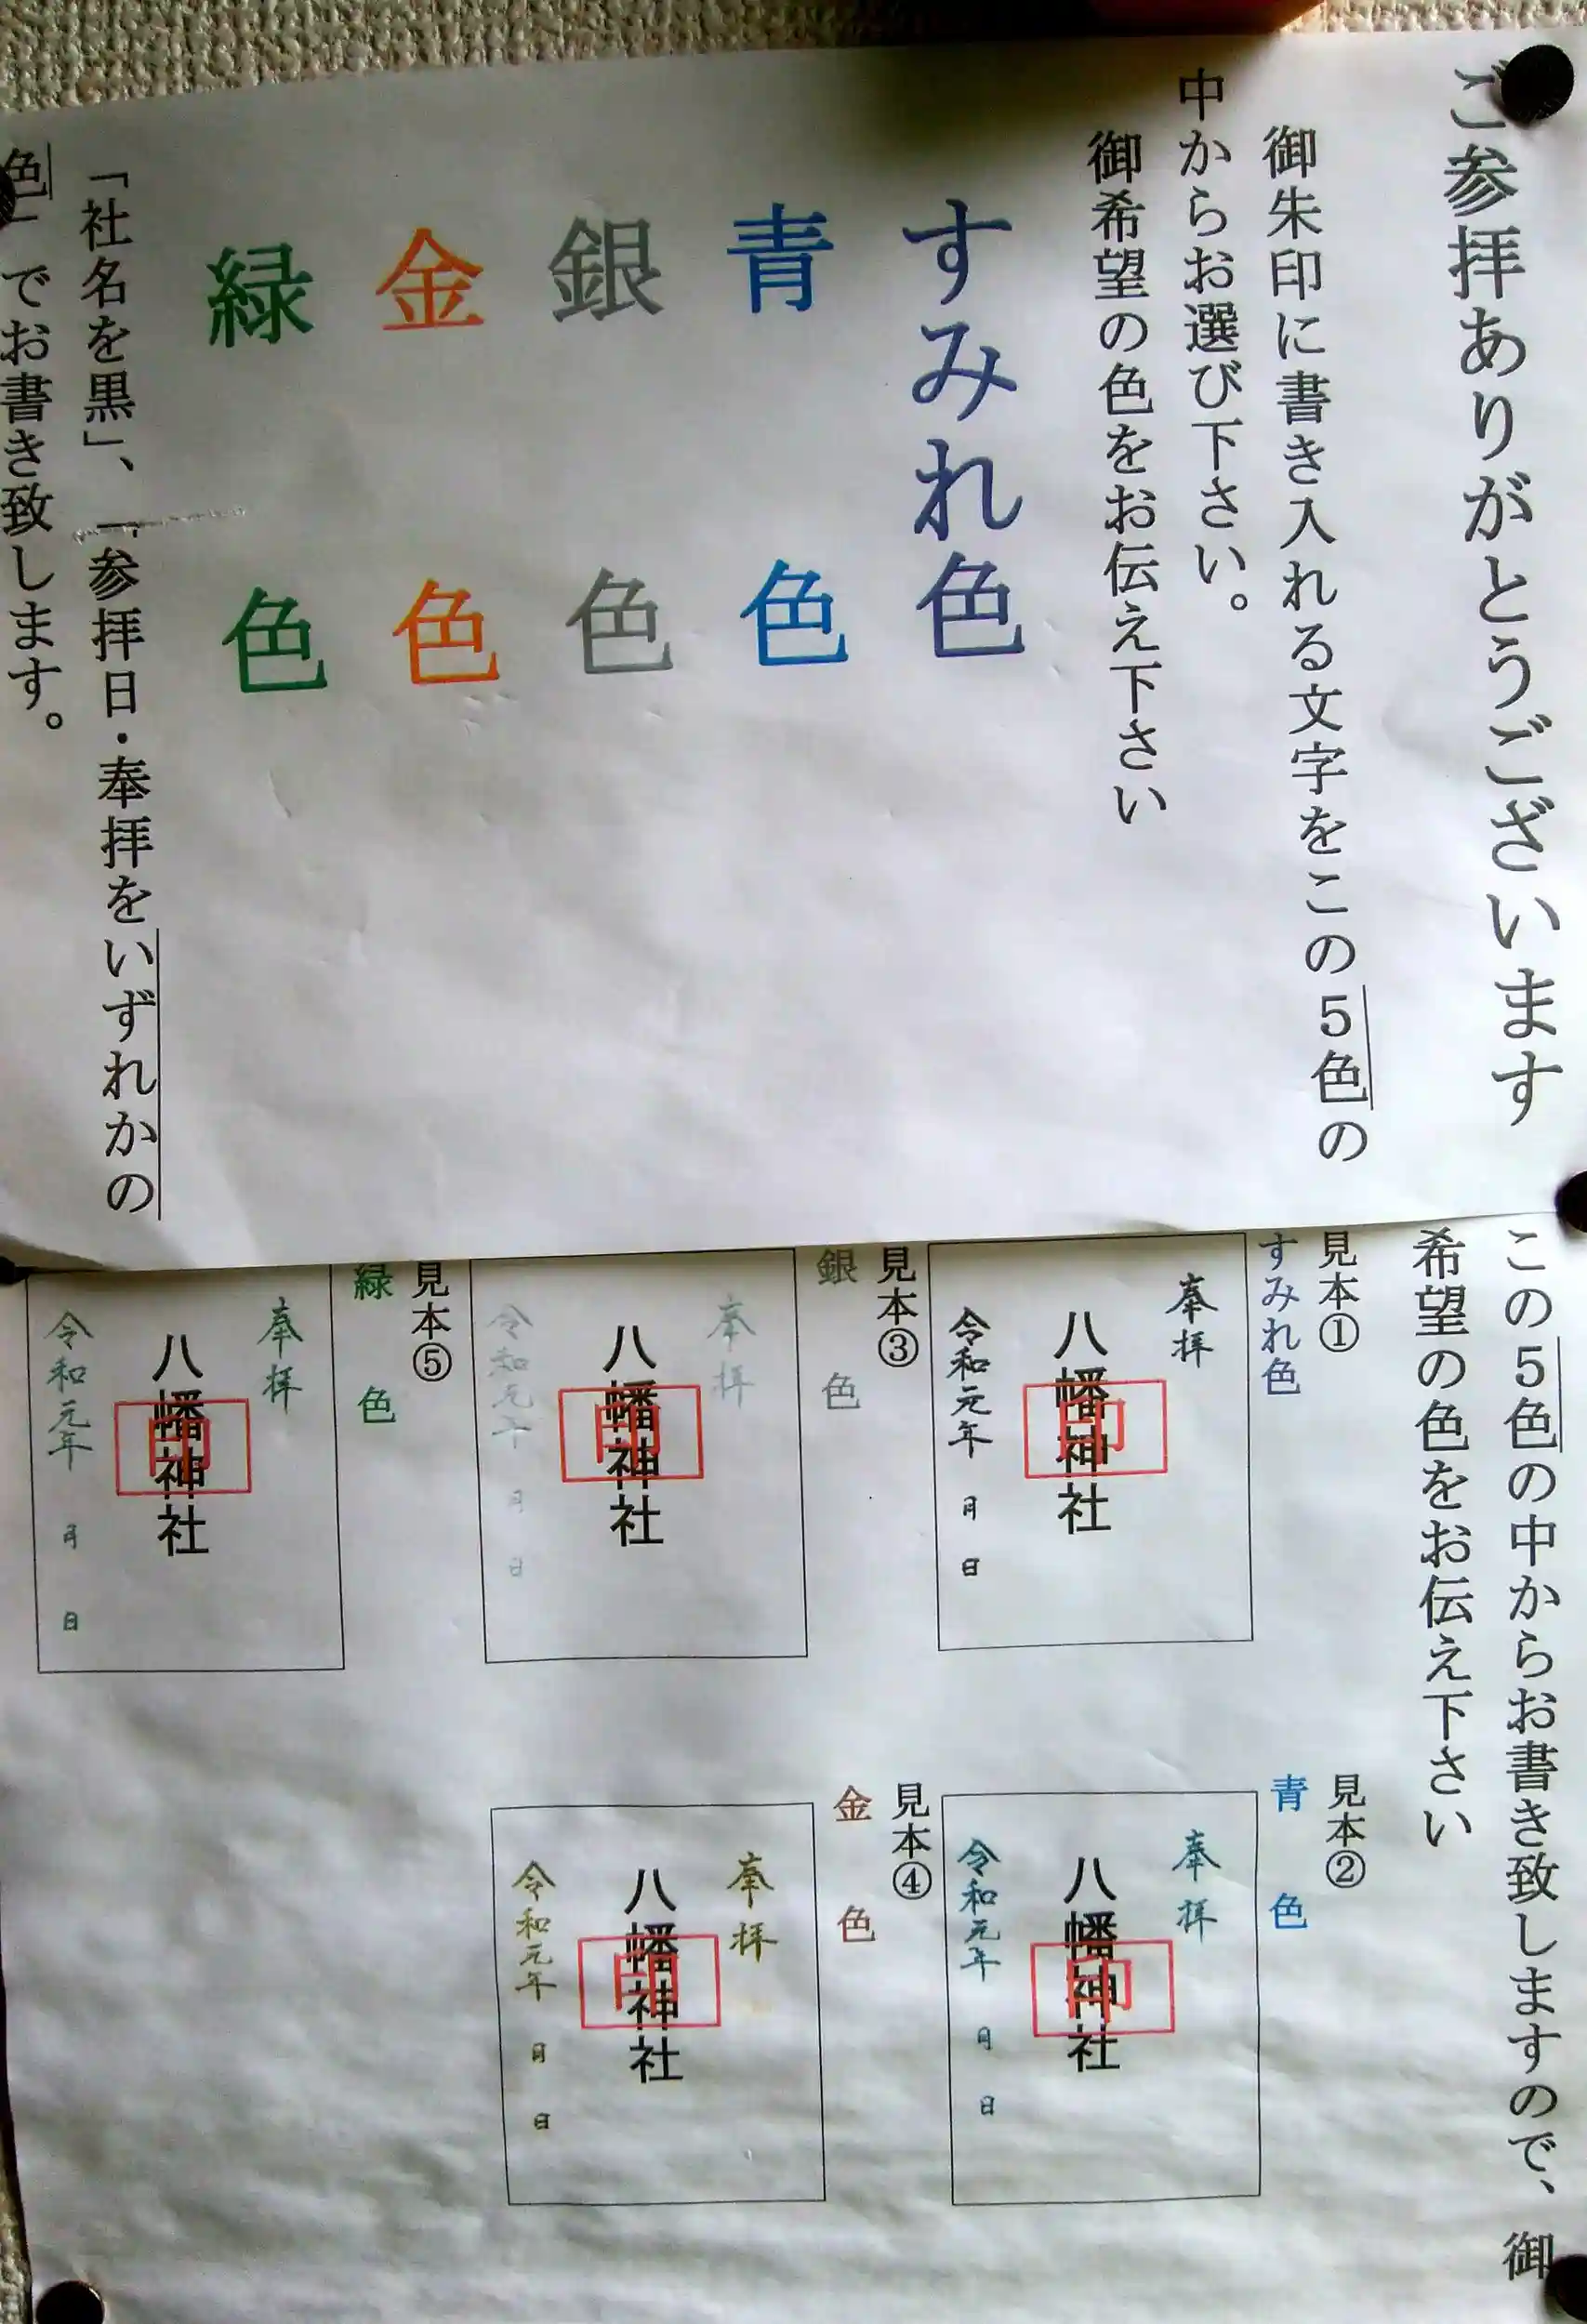 ご参拝ありがとうございます
御朱印に書き入れる文字をこの５色の
中からお選び下さい。
御希望の色をお伝え下さい
すみれ色
青色
銀色
金色
緑色
「社名を黒」、「参拝日・奉拝をいずれかの
色」でお書き致します。
この５色の中からお書き致しますので、御
希望の色をお伝え下さい
見本①
すみれ色
奉拝
八幡神社
印
令和元年 月 日
見本②
青色
奉拝
八幡神社
印
令和元年 月 日
見本③
銀色
奉拝
八幡神社
印
令和元年 月 日
見本④
金色
奉拝
八幡神社
印
令和元年 月 日
見本⑤
緑色
奉拝
八幡神社
印
令和元年 月 日